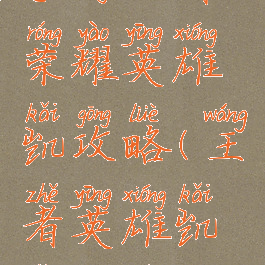 róng yào yīng xióng
荣耀英雄
kǎi gōng lüè wáng
凯攻略(王
zhě yīng xióng kǎi
者英雄凯